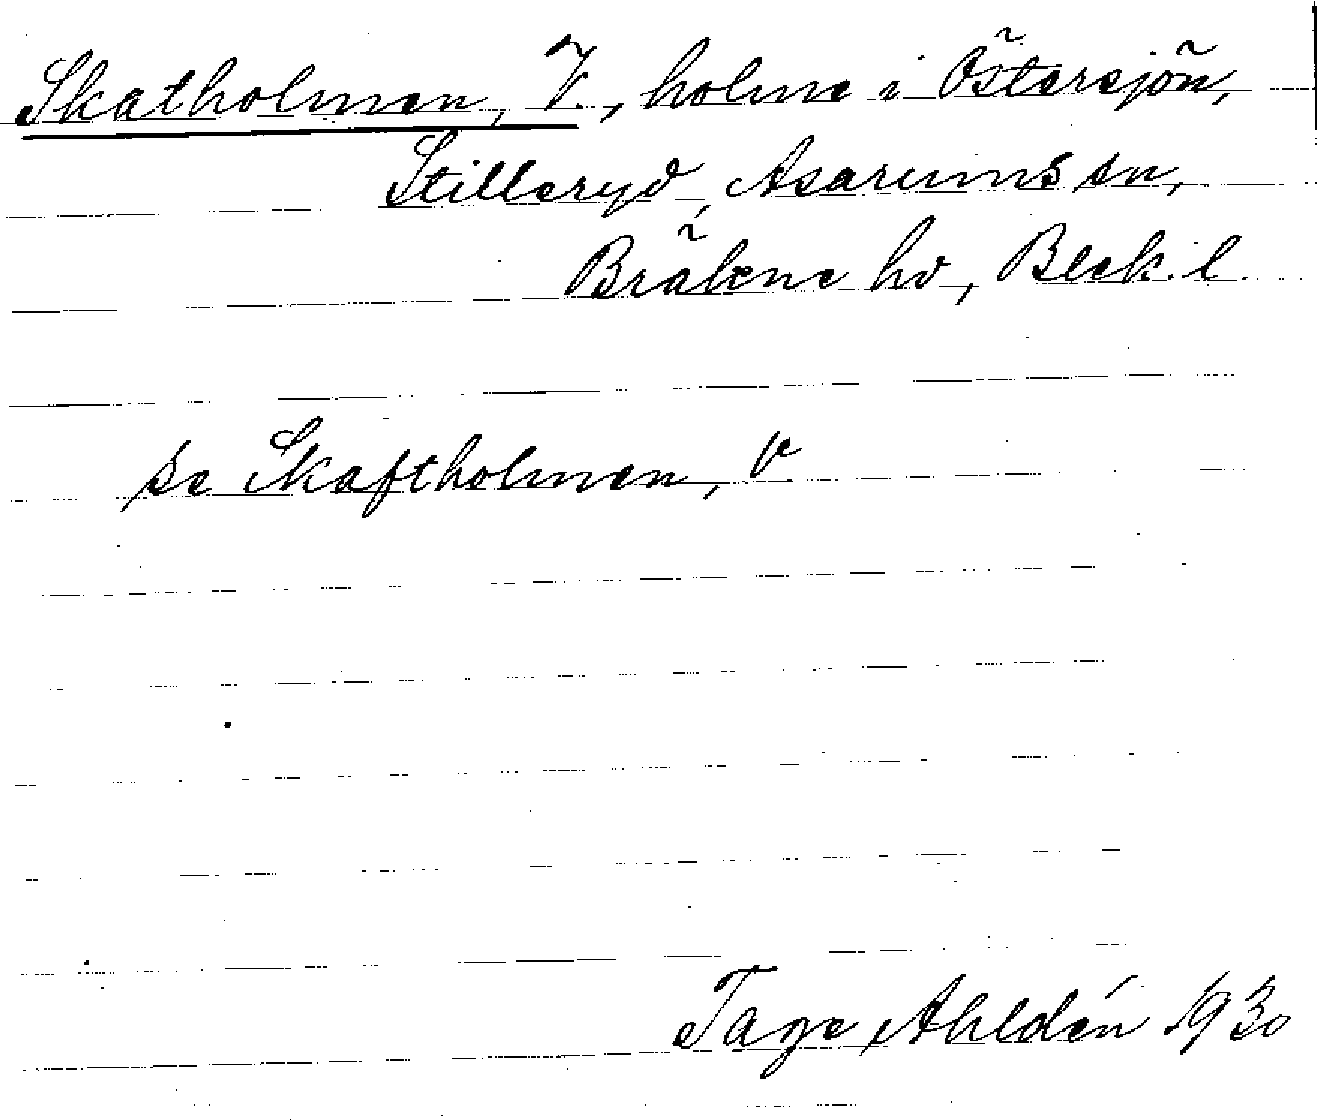 Skatholmen, V., holme i Östersjön,
Stilleryd, Asarums sn,
Bräkne hd, Blek. l
se Skaftholmen, V
Tage Ahldén 1930